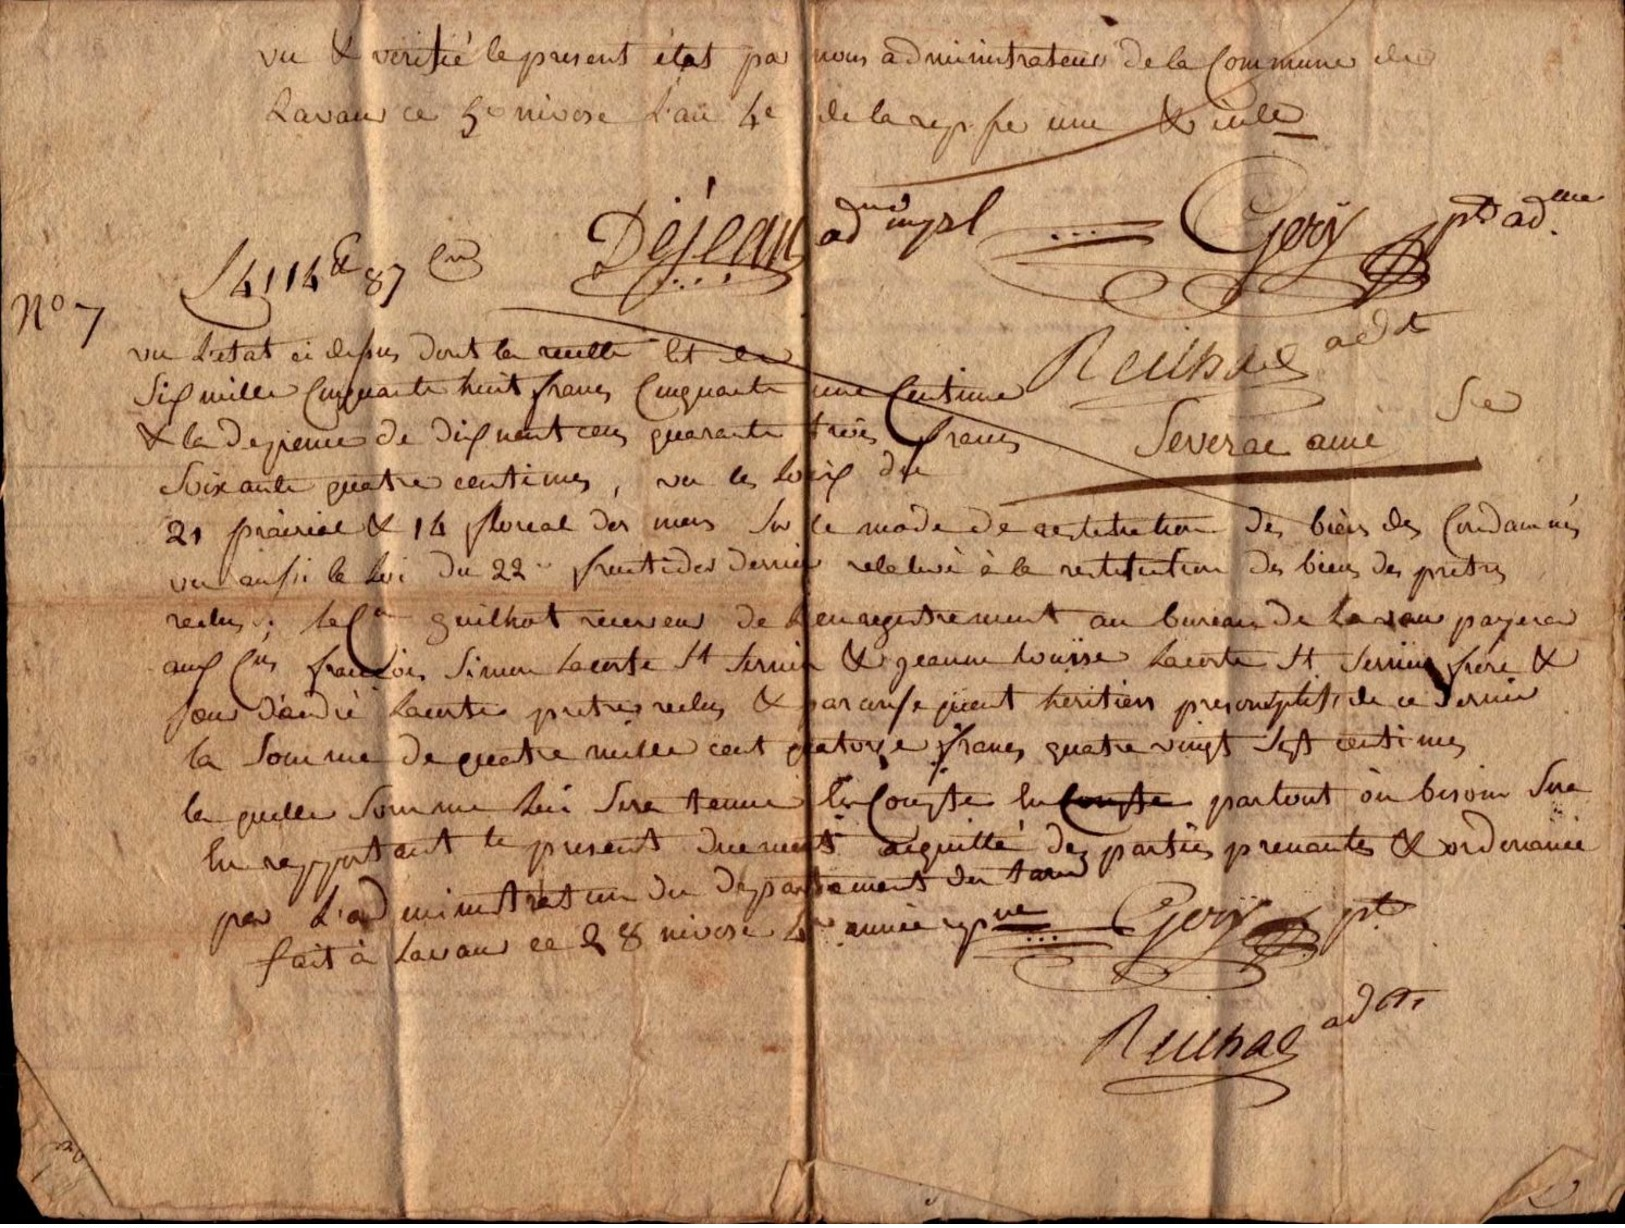 vu & verifié le present état par nous administrateurs de la Commune de
Lavaur ce 5e nivose L'an 4e de la rep. fse une & indle
Déjean adm mpl Gerÿ pt adme
4114 87
No 7
Reilhac adt
vu L'etat ci dessus dont la recette Est de
Six mille Cinquante huit francs Cinquante une Centime
& la depense de dix neuf cens quarante trois francs
Severac ainé Sre
Soixante quatre centimes, vu les Loix du
21 prairial & 14 floreal der mers Sur le mode de restitution des biens des Condamnés
vu aussi la Loi du 22 fructidor dernier relative à la restitution des biens des pretres
reclus; Le Cn guilhot receveur de L'enregistrement au bureau de Lavaur payera
aux Cns françois Simon Lacoste St Sernin & jeanne Louïse Lacoste St Sernin frere &
sœur d'andré Lacoste pretre reclus & par consequent heritiers presomptifs de ce dernier
la Somme de quatre mille cent quatorze francs quatre vingt Sept centimes
la quelle Somme Lui Sera tenue En Compte En Compte partout où besoin Sera
En rapportant le present duement acquitté des parties prenantes & ordonancé
par L'administration du departement du tarn
fait à Lavaur ce 28 nivose 4e année repne Gerÿ pt
Reilhac adt